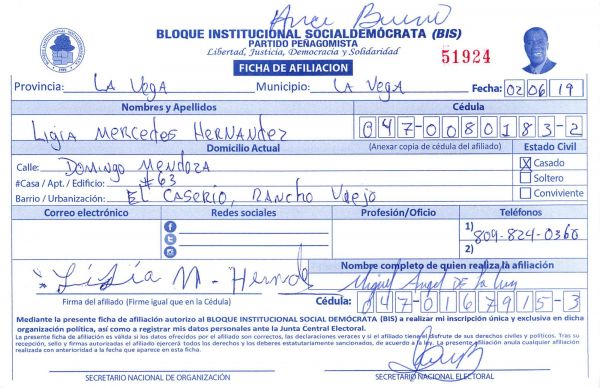 BLOQUE INSTITUCIONAL SOCIALDEMÓCRATA (BIS)
PARTIDO PEÑAGOMISTA
Libertad, Justicia, Democracia y Solidaridad
51924
FICHA DE AFILIACION
Provincia: LA VEGA Municipio: LA VEGA Fecha: 02/06/19
Nombres y Apellidos Cédula
LIGIA MERCEDES HERNANDEZ 047-0080183-2
Domicilio Actual (Anexar copia de cédula del afiliado) Estado Civil
Calle: DOMINGO MENDOZA Casado
#Casa / Apt. / Edificio: #63 Soltero
Barrio / Urbanización: EL CASERIO, RANCHO VIEJO Conviviente
Correo electrónico Redes sociales Profesión/Oficio Teléfonos
1) 809-824-0360
2)
Nombre completo de quien realiza la afiliación
Ligia M - Hernde Miguel Angel DE La Luz
Firma del afiliado (Firme igual que en la Cédula) Cédula: 047-0167915-3
Mediante la presente ficha de afiliación autorizo al BLOQUE INSTITUCIONAL SOCIAL DEMÓCRATA (BIS) a realizar mi inscripción única y exclusiva en dicha
organización política, así como a registrar mis datos personales ante la Junta Central Electoral.
La presente ficha de afiliación es válida si los datos ofrecidos por el afiliado son correctos, las declaraciones veraces y si el afiliado tiene el disfrute de sus derechos civiles y políticos. Tras su
recepción, sello y firmas autorizadas el afiliado ejercerá todos los derechos y los deberes estatutariamente sancionados, de acuerdo a la ley. La presente afiliación anula cualquier afiliación
realizada con anterioridad a la fecha que aparece en esta ficha.
SECRETARIO NACIONAL DE ORGANIZACIÓN SECRETARIO NACIONAL ELECTORAL